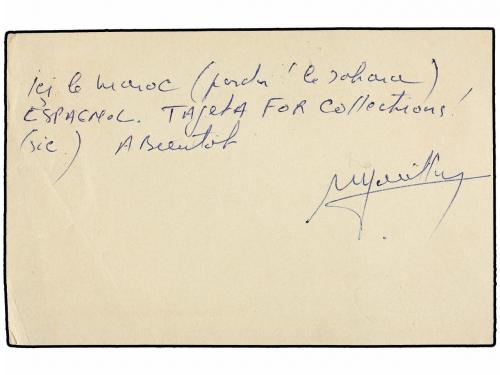 Içi le Maroc (pardon! le Sahara)
ESPAGNOL. TAJetA FOR Collections!
(sic) A Bientôt